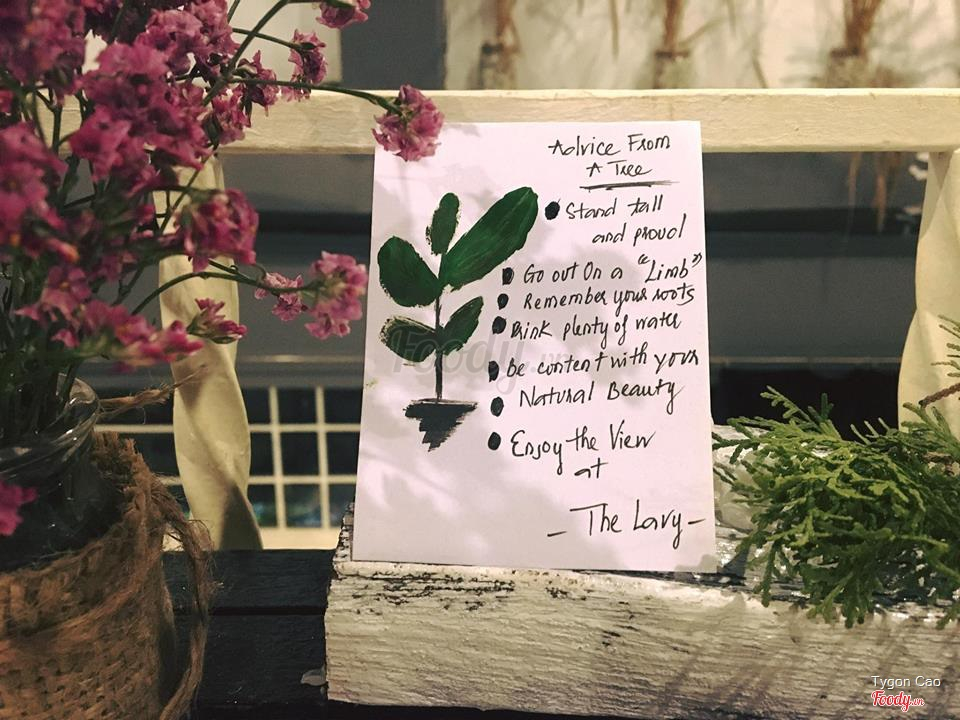 Advice From
A Tree
Stand tall
and proud
Go out On a "Limb"
Remember your roots
Drink plenty of water
Be content with your
Natural Beauty
Enjoy the View
at
- The Lavy -
Foody.vn
Tygon Cao
Foody.vn